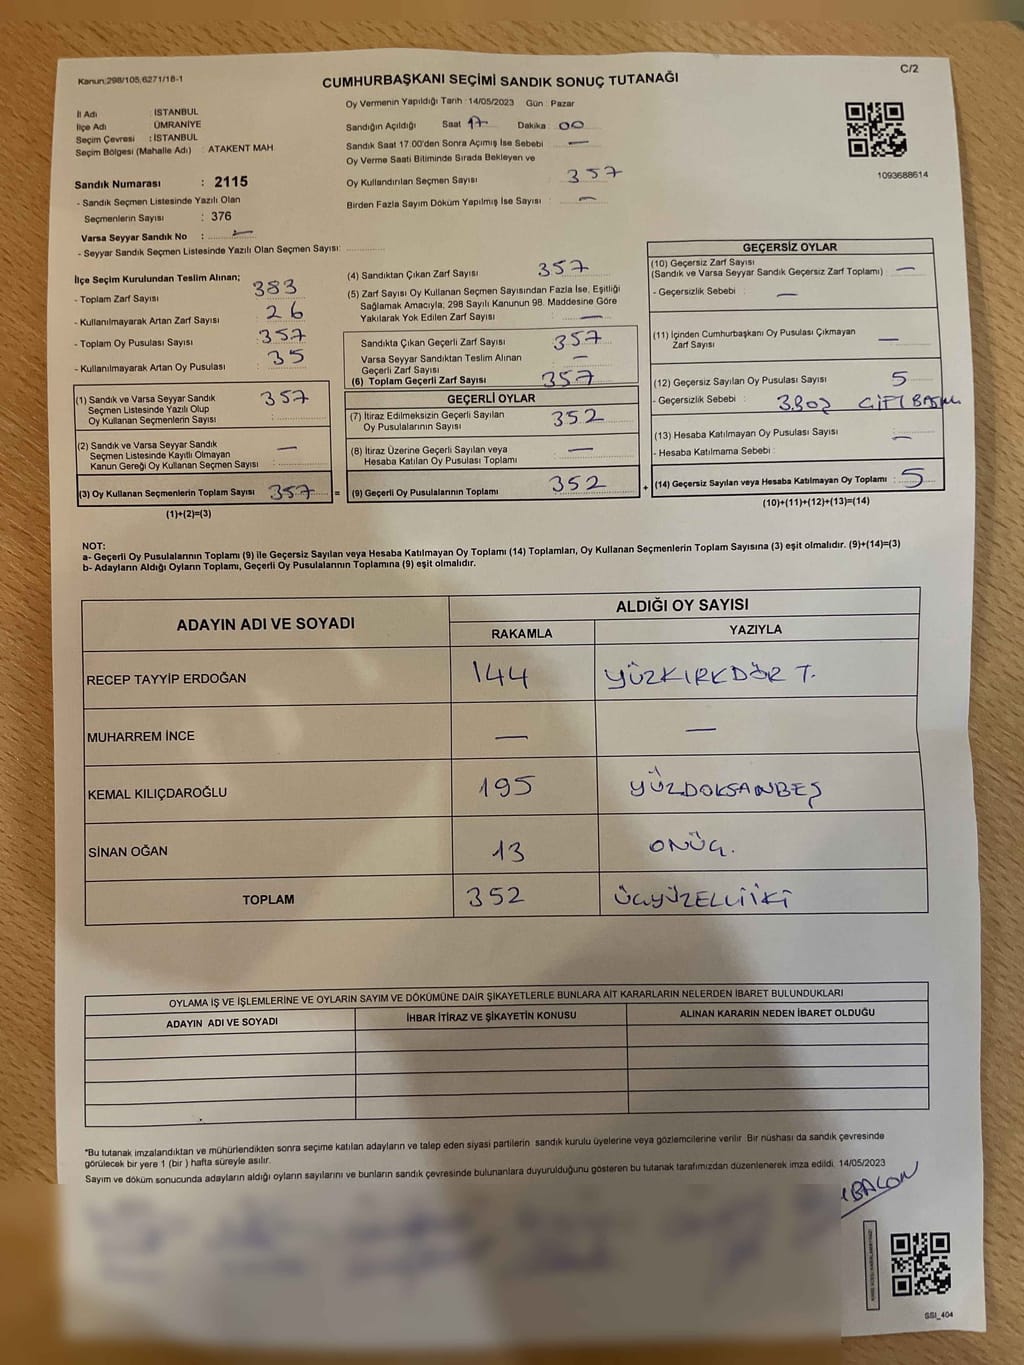 Kanun:298/105,6271/18-1
C/2
CUMHURBAŞKANI SEÇİMİ SANDIK SONUÇ TUTANAĞI
İl Adı : İSTANBUL
İlçe Adı : ÜMRANİYE
Seçim Çevresi : İSTANBUL
Seçim Bölgesi (Mahalle Adı) : ATAKENT MAH.
Oy Vermenin Yapıldığı Tarih : 14/05/2023 Gün : Pazar
Sandığın Açıldığı Saat 17 Dakika : 00
Sandık Saat 17.00'den Sonra Açımış İse Sebebi : —
Oy Verme Saati Bitiminde Sırada Bekleyen ve
Oy Kullandırılan Seçmen Sayısı : 357
Birden Fazla Sayım Döküm Yapılmış İse Sayısı : —
1093688614
Sandık Numarası : 2115
- Sandık Seçmen Listesinde Yazılı Olan
Seçmenlerin Sayısı : 376
Varsa Seyyar Sandık No : —
- Seyyar Sandık Seçmen Listesinde Yazılı Olan Seçmen Sayısı:
İlçe Seçim Kurulundan Teslim Alınan;
- Toplam Zarf Sayısı : 383
- Kullanılmayarak Artan Zarf Sayısı : 26
- Toplam Oy Pusulası Sayısı : 357
- Kullanılmayarak Artan Oy Pusulası : 35
(1) Sandık ve Varsa Seyyar Sandık
Seçmen Listesinde Yazılı Olup
Oy Kullanan Seçmenlerin Sayısı : 357
(2) Sandık ve Varsa Seyyar Sandık
Seçmen Listesinde Kayıtlı Olmayan
Kanun Gereği Oy Kullanan Seçmen Sayısı : —
(3) Oy Kullanan Seçmenlerin Toplam Sayısı : 357 =
(1)+(2)=(3)
(4) Sandıktan Çıkan Zarf Sayısı : 357
(5) Zarf Sayısı Oy Kullanan Seçmen Sayısından Fazla İse, Eşitliği
Sağlamak Amacıyla; 298 Sayılı Kanunun 98. Maddesine Göre
Yakılarak Yok Edilen Zarf Sayısı : —
Sandıkta Çıkan Geçerli Zarf Sayısı : 357
Varsa Seyyar Sandıktan Teslim Alınan
Geçerli Zarf Sayısı : —
(6) Toplam Geçerli Zarf Sayısı : 357
GEÇERLİ OYLAR
(7) İtiraz Edilmeksizin Geçerli Sayılan
Oy Pusulalarının Sayısı : 352
(8) İtiraz Üzerine Geçerli Sayılan veya
Hesaba Katılan Oy Pusulası Toplamı : —
(9) Geçerli Oy Pusulalarının Toplamı : 352 +
GEÇERSİZ OYLAR
(10) Geçersiz Zarf Sayısı
(Sandık ve Varsa Seyyar Sandık Geçersiz Zarf Toplamı) : —
- Geçersizlik Sebebi : —
(11) İçinden Cumhurbaşkanı Oy Pusulası Çıkmayan
Zarf Sayısı : —
(12) Geçersiz Sayılan Oy Pusulası Sayısı : 5
- Geçersizlik Sebebi :
(13) Hesaba Katılmayan Oy Pusulası Sayısı : —
- Hesaba Katılmama Sebebi :
(14) Geçersiz Sayılan veya Hesaba Katılmayan Oy Toplamı : 5
(10)+(11)+(12)+(13)=(14)
NOT:
a- Geçerli Oy Pusulalarının Toplamı (9) ile Geçersiz Sayılan veya Hesaba Katılmayan Oy Toplamı (14) Toplamları, Oy Kullanan Seçmenlerin Toplam Sayısına (3) eşit olmalıdır. (9)+(14)=(3)
b- Adayların Aldığı Oyların Toplamı, Geçerli Oy Pusulalarının Toplamına (9) eşit olmalıdır.
ADAYIN ADI VE SOYADI ALDIĞI OY SAYISI
RAKAMLA YAZIYLA
RECEP TAYYİP ERDOĞAN 144 YÜZKIRKDÖRT.
MUHARREM İNCE — —
KEMAL KILIÇDAROĞLU 195 YÜZDOKSANBEŞ
SİNAN OĞAN 13 ONÜÇ.
TOPLAM 352 ÜÇYÜZELLİİKİ
OYLAMA İŞ VE İŞLEMLERİNE VE OYLARIN SAYIM VE DÖKÜMÜNE DAİR ŞİKAYETLERLE BUNLARA AİT KARARLARIN NELERDEN İBARET BULUNDUKLARI
ADAYIN ADI VE SOYADI İHBAR İTİRAZ VE ŞİKAYETİN KONUSU ALINAN KARARIN NEDEN İBARET OLDUĞU
*Bu tutanak imzalandıktan ve mühürlendikten sonra seçime katılan adayların ve talep eden siyasi partilerin sandık kurulu üyelerine veya gözlemcilerine verilir. Bir nüshası da sandık çevresinde
görülecek bir yere 1 (bir ) hafta süreyle asılır.
Sayım ve döküm sonucunda adayların aldığı oyların sayılarını ve bunların sandık çevresinde bulunanlara duyurulduğunu gösteren bu tutanak tarafımızdan düzenlenerek imza edildi. 14/05/2023
SSI_404